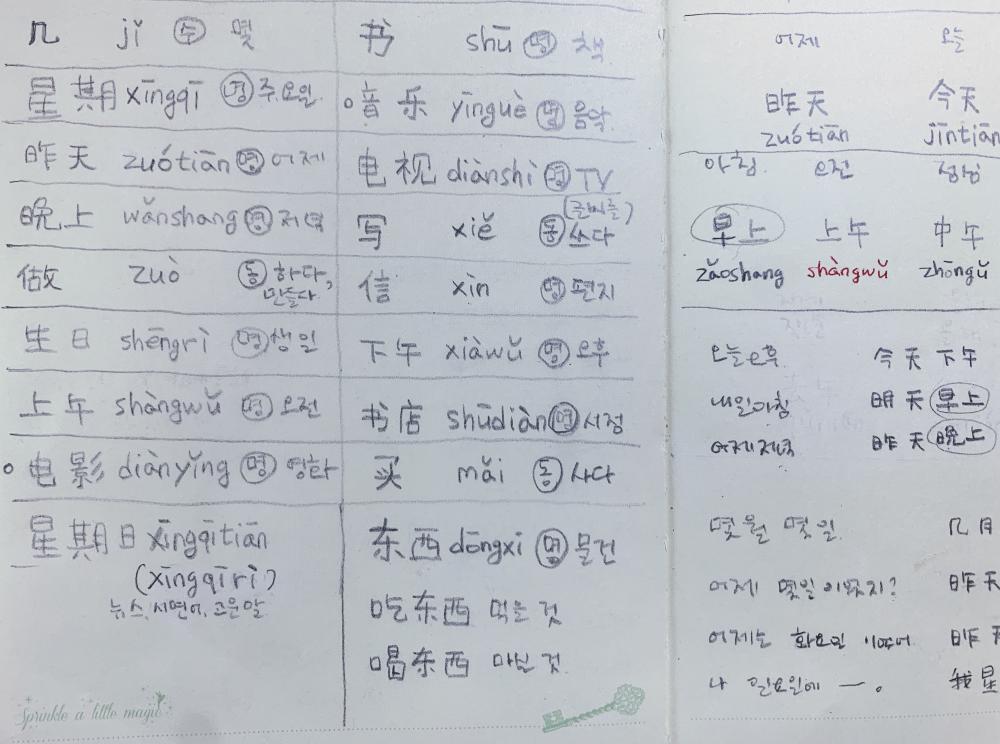 几 jǐ 수 몇
星期 xīngqī 명 주, 요일
昨天 zuótiān 명 어제
晚上 wǎnshang 명 저녁
做 zuò 동 하다, 만들다
生日 shēngrì 명 생일
上午 shàngwǔ 명 오전
电影 diànyǐng 명 영화
星期日 xīngqītiān
(xīngqīrì)
뉴스, 서면어, 고운말
Sprinkle a little magic
书 shū 명 책
音乐 yīnguè 명 음악
电视 diànshì 명 TV
(글씨를)
写 xiě 동 쓰다
信 xìn 명 편지
下午 xiàwǔ 명 오후
书店 shūdiàn 명 서점
买 mǎi 동 사다
东西 dōngxi 명 물건
吃东西 먹을 것
喝东西 마실 것
어제 오늘
昨天 今天
zuótiān jīntiān
아침 오전 점심
早上 上午 中午
zǎoshang shàngwǔ zhōngǔ
오늘오후 今天下午
내일아침 明天早上
어제저녁 昨天晚上
몇월 몇일 几月
어제 몇일이었지? 昨天
어제는 화요일 이었어 昨天
나 일요일에 一。 我星